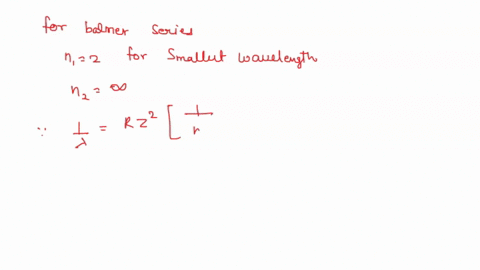 for balmer series
n₁ = 2 for Smallest wavelength
n₂ = ∞
∵ 1/λ = RZ² [ 1/n